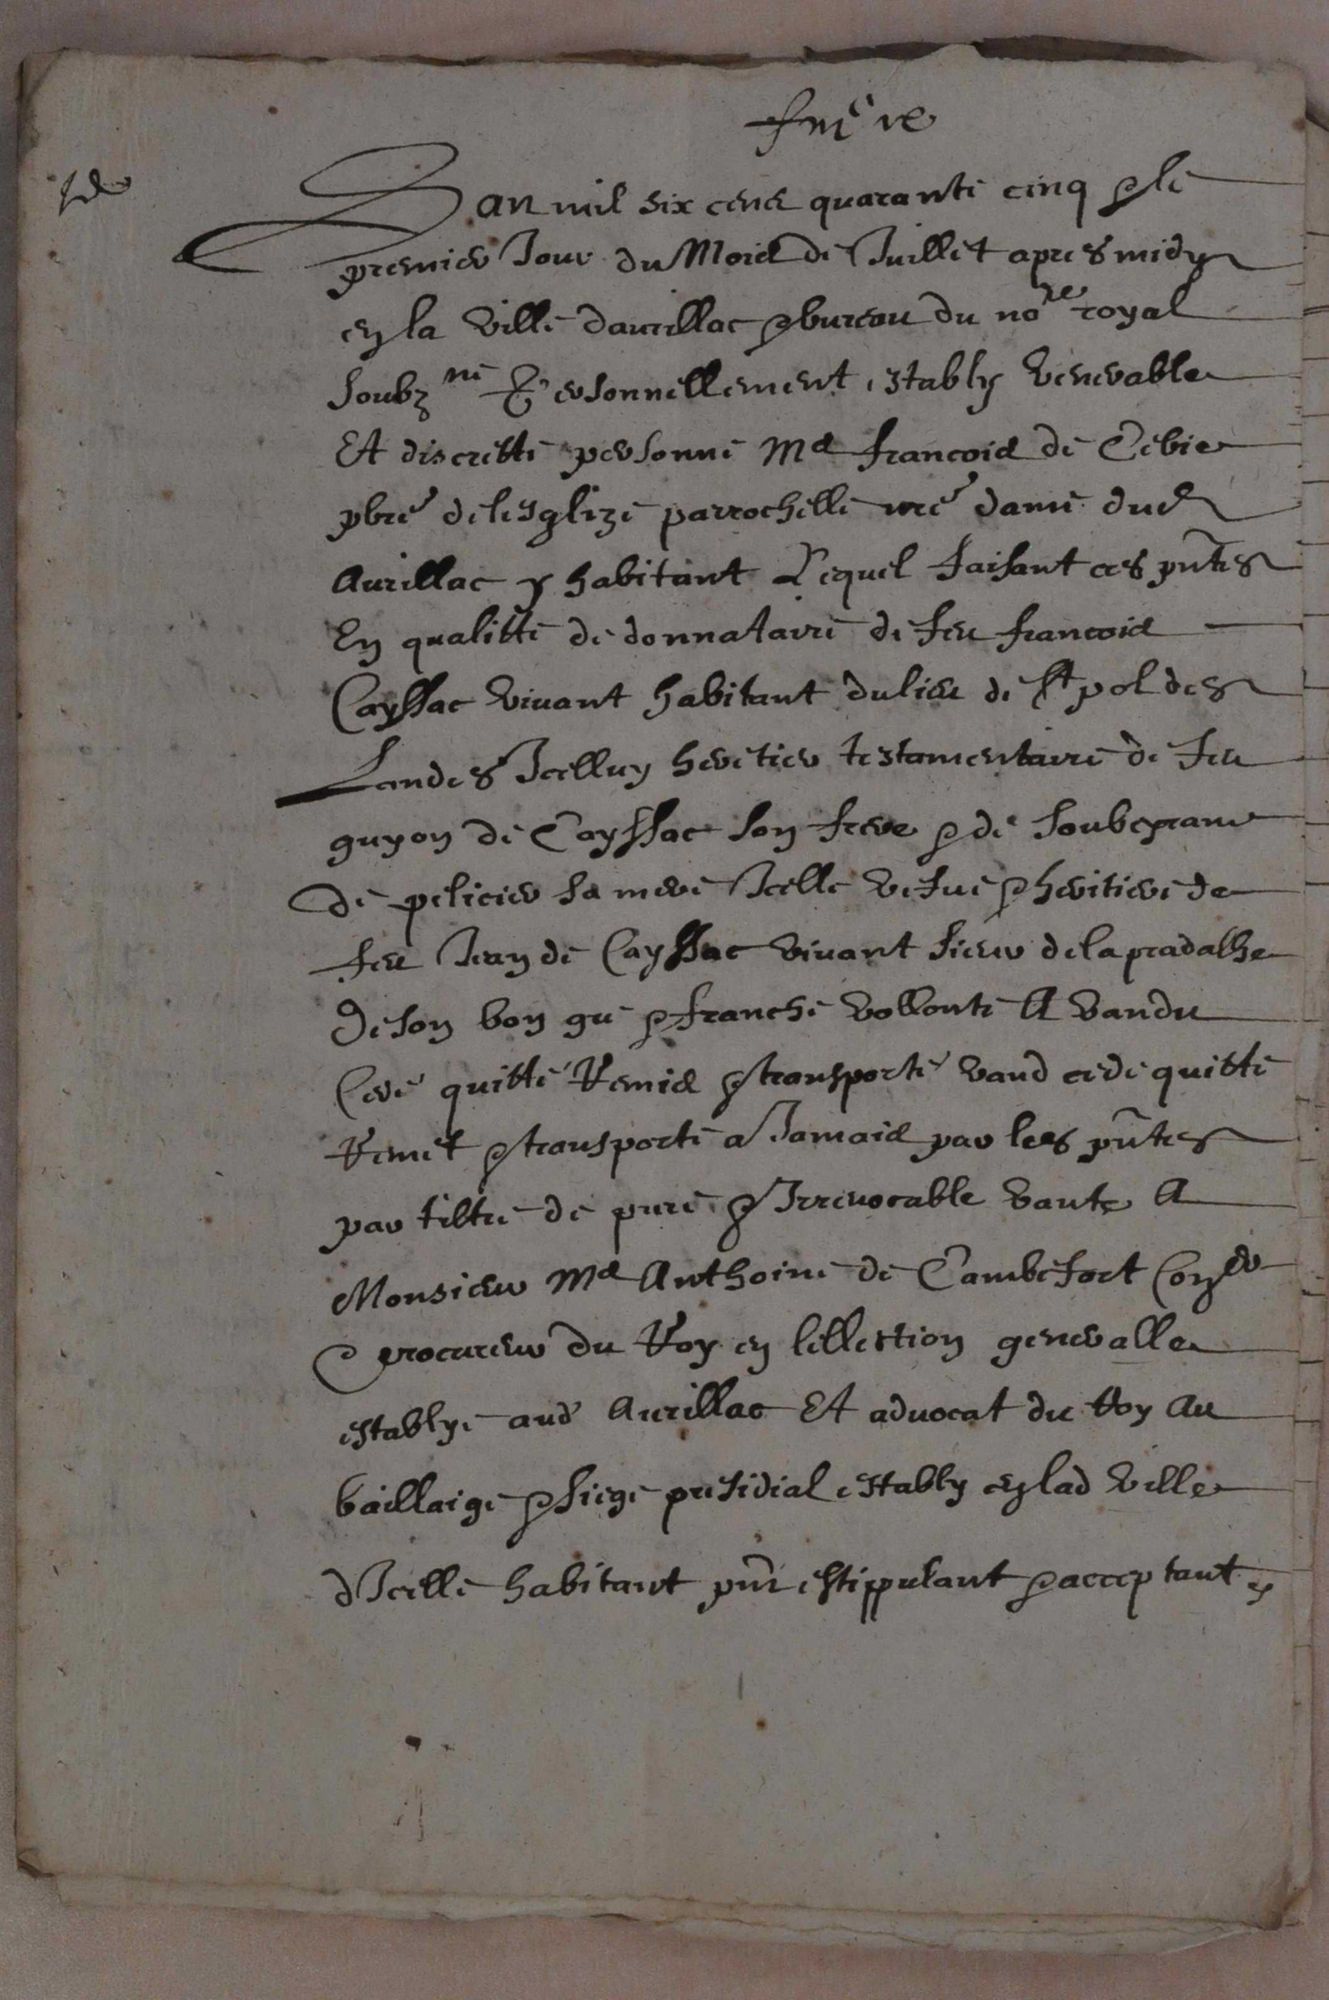 Lan mil six cens quarante cinq & le
premier Jour du Mois de Juillet apres midy
en la ville daurillac & bureau du nore royal
soubzne Personnellement establỹ venerable
Et discrette personne Me francois de Cebie
pbre de lesglize parrochelle nre dame dud
Aurillac y habitant Lequel faisant ces pntes
En qualitté de donnataire de feu francois
Cayssac vivant habitant du lieu de St pol des
Landes Icelluy heretier testamentaire de feu
guyon de Cayssac son frere & de soubeyrane
de pelicier sa mere Icelle vefue & heritiere de
feu Jean de Cayssac vivant sieur de la pradalhe
de son bon gre & franche vollonte A vandu
Cede quitté Remis & transporté vand cede quitte
Remet & transporte a Jamais par les pntes
par tiltre de pure & Irrevocable vante A
Monsieur Me Anthoine de Cambefort Coner
procureur du Roy en lellection generalle
establye aud Aurillac Et advocat du Roy au
baillaige & siege presidial establỹ en lad ville
dIcelle habitant pnt estippulant & acceptant